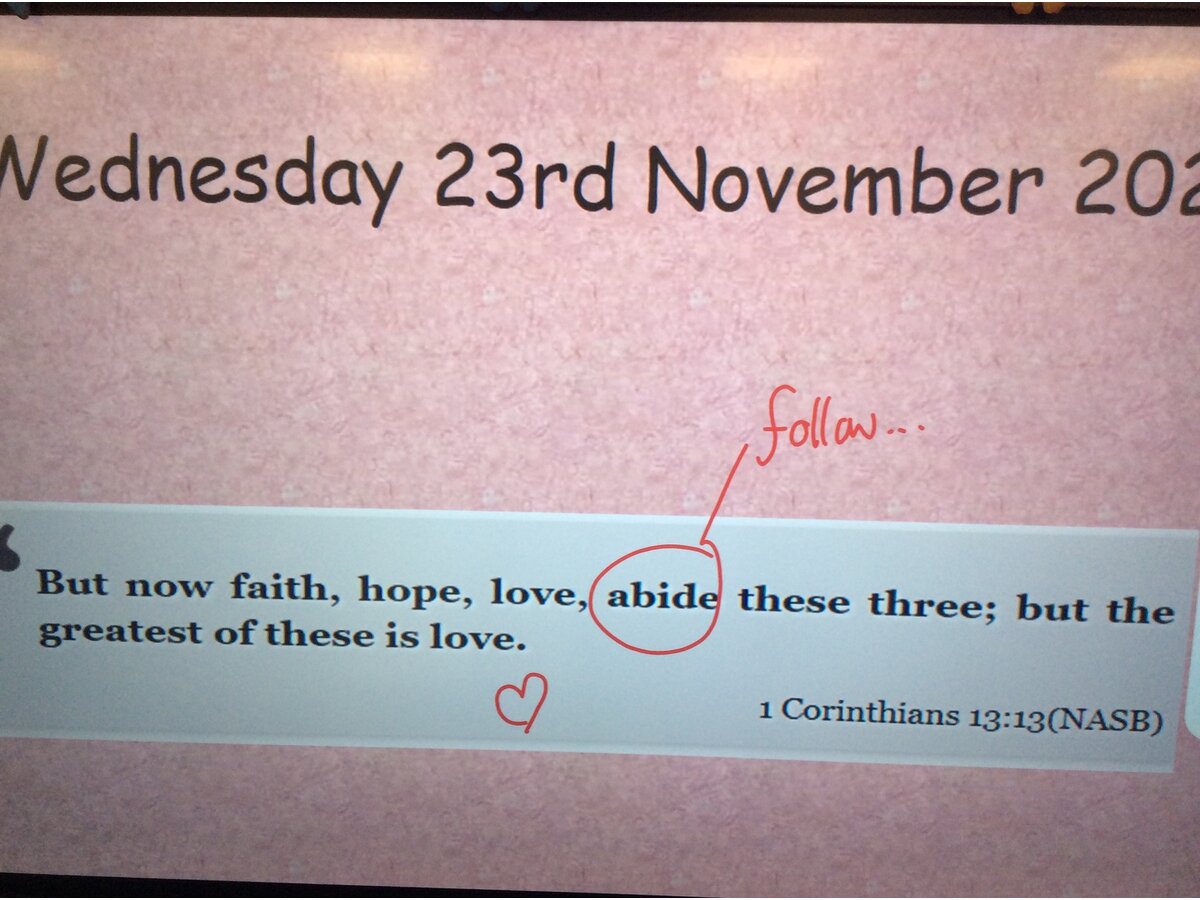 Wednesday 23rd November 202
follow...
But now faith, hope, love, abide these three; but the
greatest of these is love.
1 Corinthians 13:13(NASB)